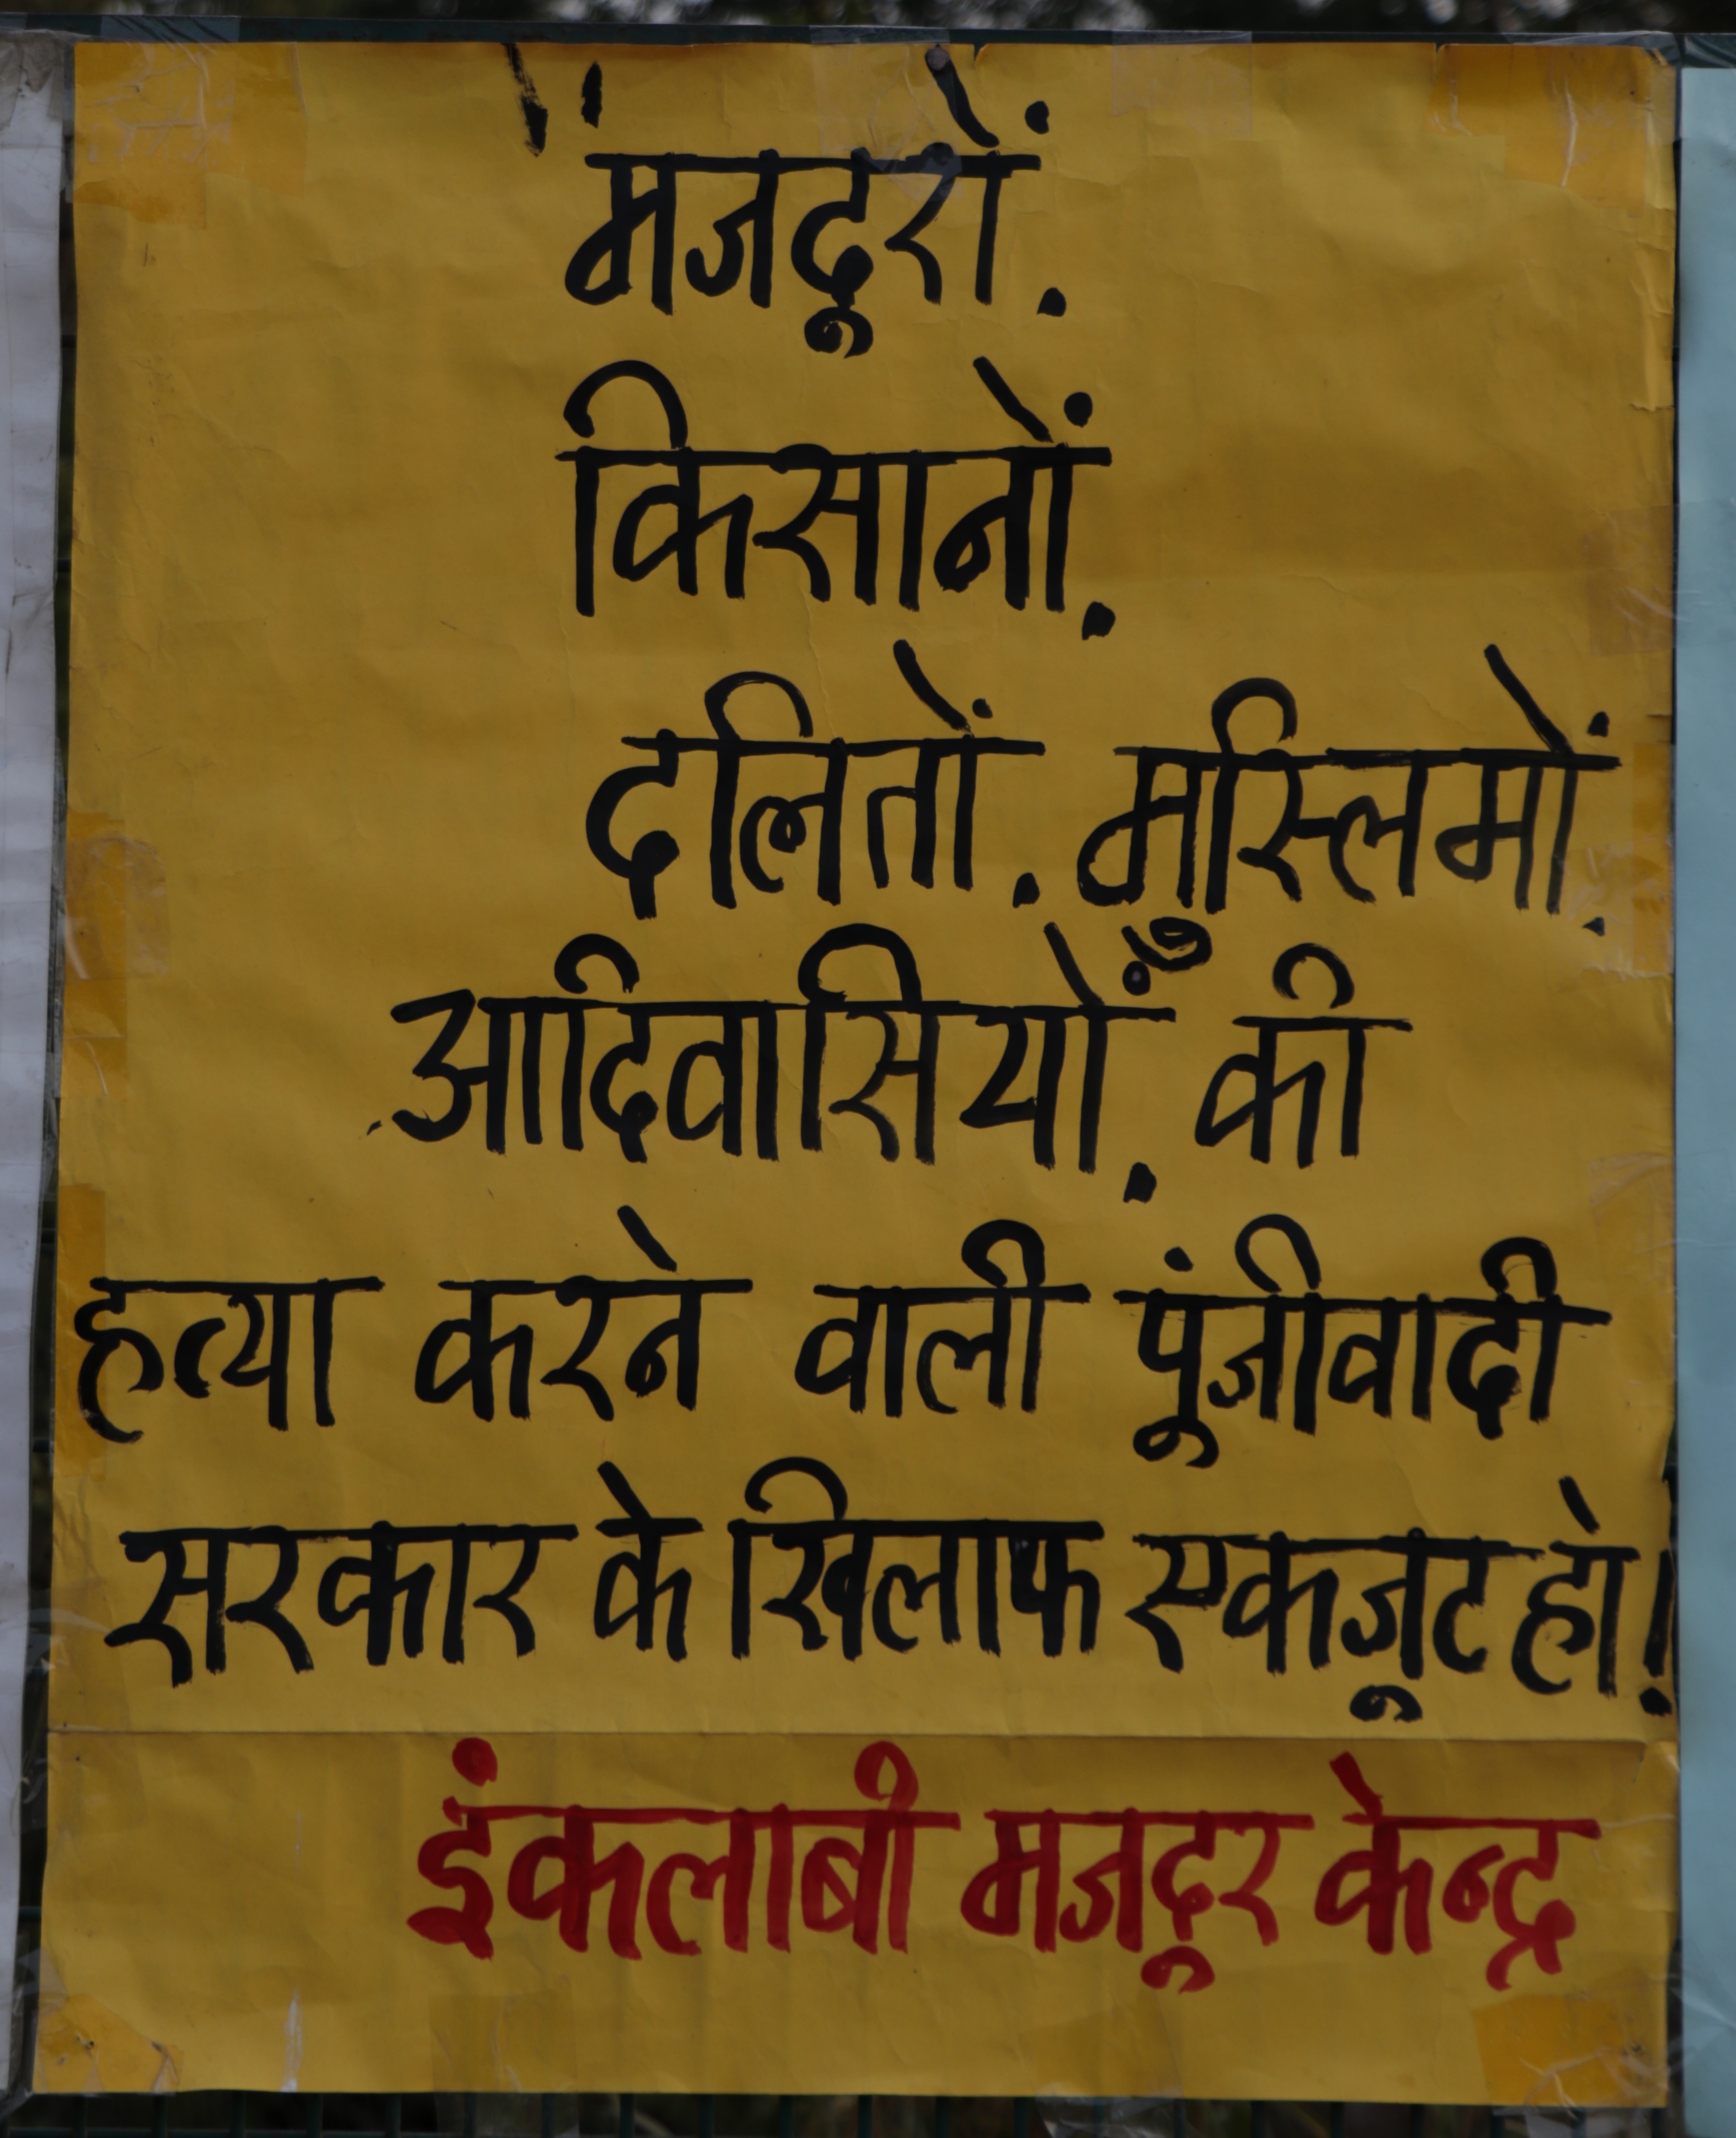 मजदूरों.
किसानों.
दलितों. मुस्लिमों.
आदिवासियों. की
हत्या करने वाली पूंजीवादी
सरकार के खिलाफ एकजूट हो!
इंकलाबी मजदूर केन्द्र